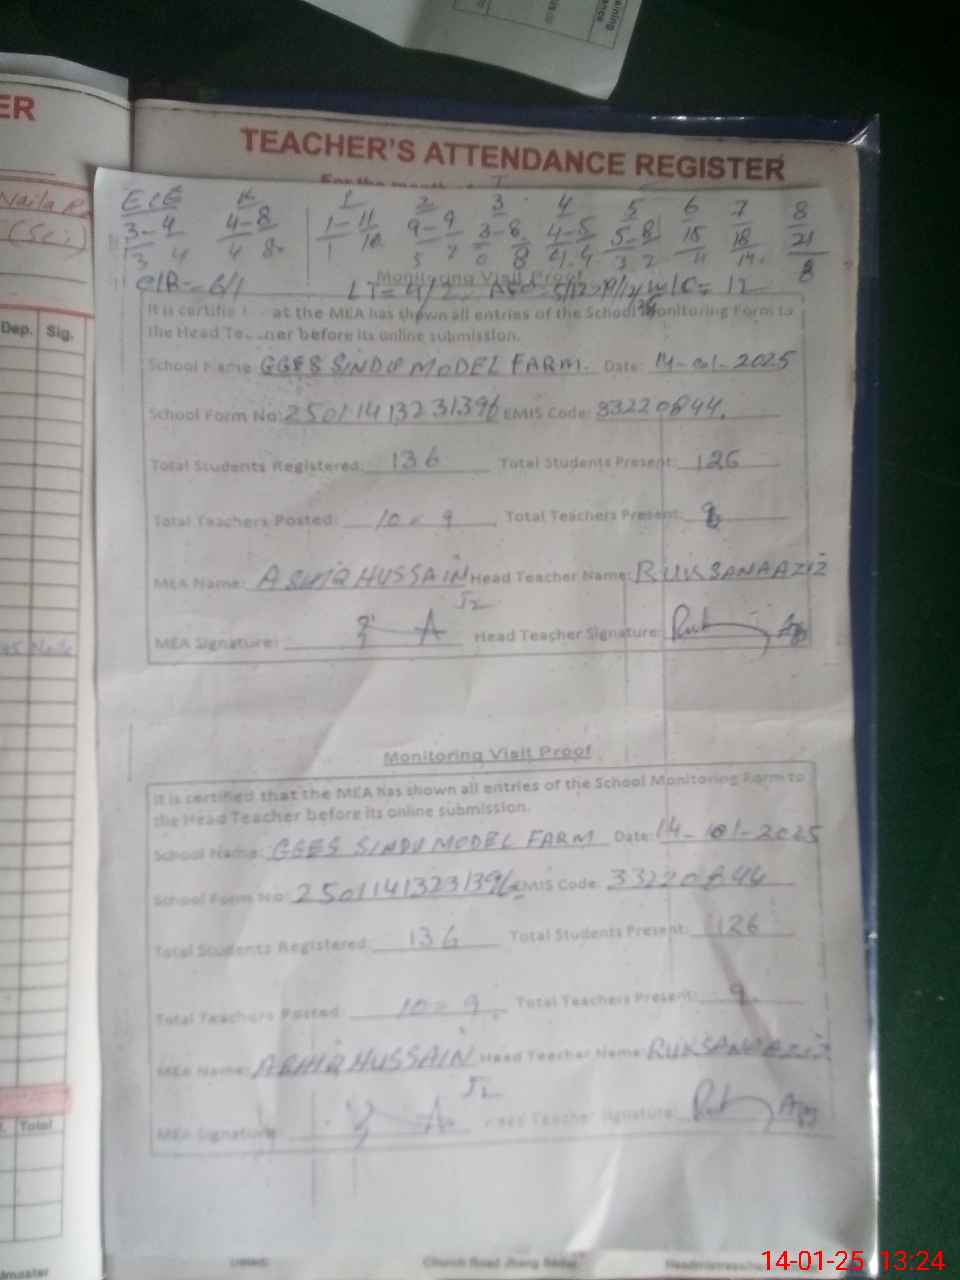 TEACHER'S ATTENDANCE REGISTER
ECE K 1 2 3 4 5 6 7 8
3-4 4-8 1-11 9-9 3-8 4-5 5-8 15 18 21
3 4 4 8 1 10 5 7 0 8 4.4 3 2 11 14. 8
Monitoring Visit Proof
LT=4/2
It is certified at the MEA has shown all entries of the School Monitoring Form to
the Head Teacher before its online submission.
School Name GGES SINDU MODEL FARM. Date: 14-01-2025
School Form No: 25011413231396 EMIS Code: 33220844.
Total Students Registered: 136 Total Students Present: 126
Total Teachers Posted: 10=9 Total Teachers Present: 9
MEA Name: ASHIQ HUSSAIN Head Teacher Name: RUKSANA AZIZ
MEA Signature: Head Teacher Signature:
Monitoring Visit Proof
It is certified that the MEA has shown all entries of the School Monitoring Form to
the Head Teacher before its online submission.
School Name: GGES SINDU MODEL FARM Date: 14-01-2025
School Form No: 25011413231396 EMIS Code: 33220844
Total Students Registered: 136 Total Students Present: 126
Total Teachers Posted: 10=9. Total Teachers Present: 9.
MEA Name: ASHIQ HUSSAIN Head Teacher Name: RUKSANA AZIZ
MEA Signature: Head Teacher Signature:
Church Road Jhang Sadar
ER
Naila
(Sci)
Dep. Sig.
Total
14-01-25 13:24